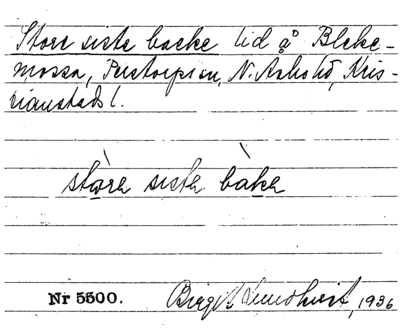 Store siste backe lid å Bleke-
mossa, Perstorp sn, N. Åsbo hd, Kris-
tianstads l.
störa sista bàka
Nr 5500. Birgit Lundkvist, 1936